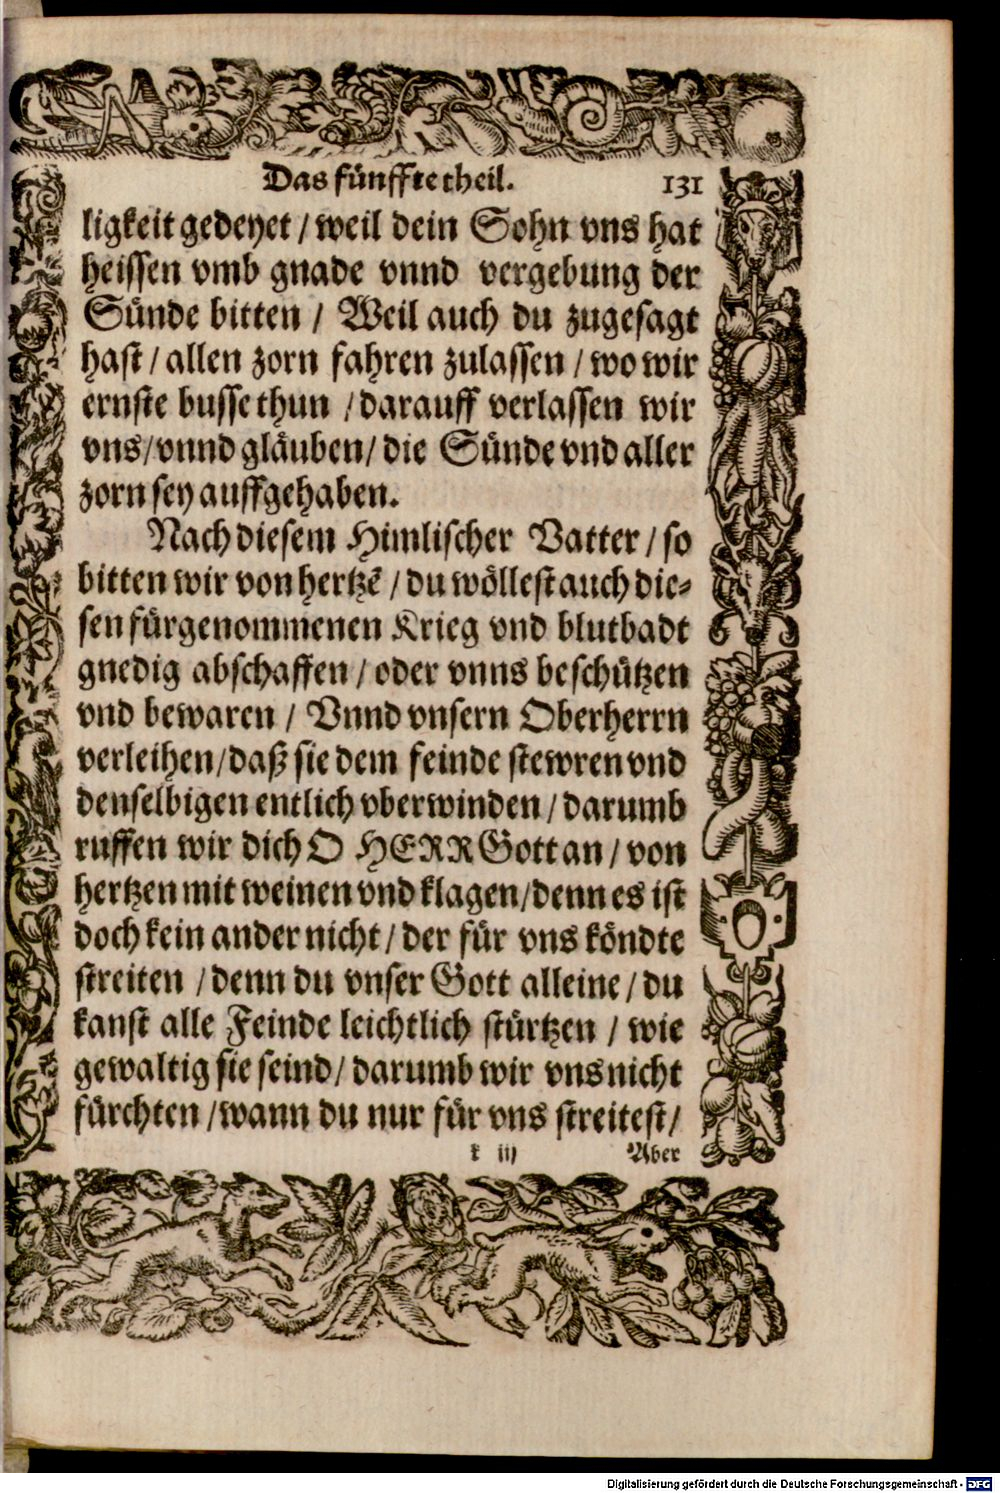 Das fünffte theil. 131
ligkeit gedeyet / weil dein Sohn vns hat
heissen vmb gnade vnnd vergebung der
Sünde bitten / Weil auch du zugesagt
hast / allen zorn fahren zulassen / wo wir
ernste busse thun / darauff verlassen wir
vns / vnnd gläuben / die Sünde vnd aller
zorn sey auffgehaben.
Nach diesem Himlischer Vatter / so
bitten wir von hertzē / du wöllest auch die⸗
sen fürgenommenen Krieg vnd blutbadt
gnedig abschaffen / oder vnns beschützen
vnd bewaren / Vnnd vnsern Oberherrn
verleihen / daß sie dem feinde stewren vnd
denselbigen entlich vberwinden / darumb
ruffen wir dich O HERR Gott an / von
hertzen mit weinen vnd klagen / denn es ist
doch kein ander nicht / der für vns köndte
streiten / denn du vnser Gott alleine / du
kanst alle Feinde leichtlich stürtzen / wie
gewaltig sie seind / darumb wir vns nicht
fürchten / wann du nur für vns streitest /
k iij Aber
Digitalisierung gefördert durch die Deutsche Forschungsgemeinschaft - DFG